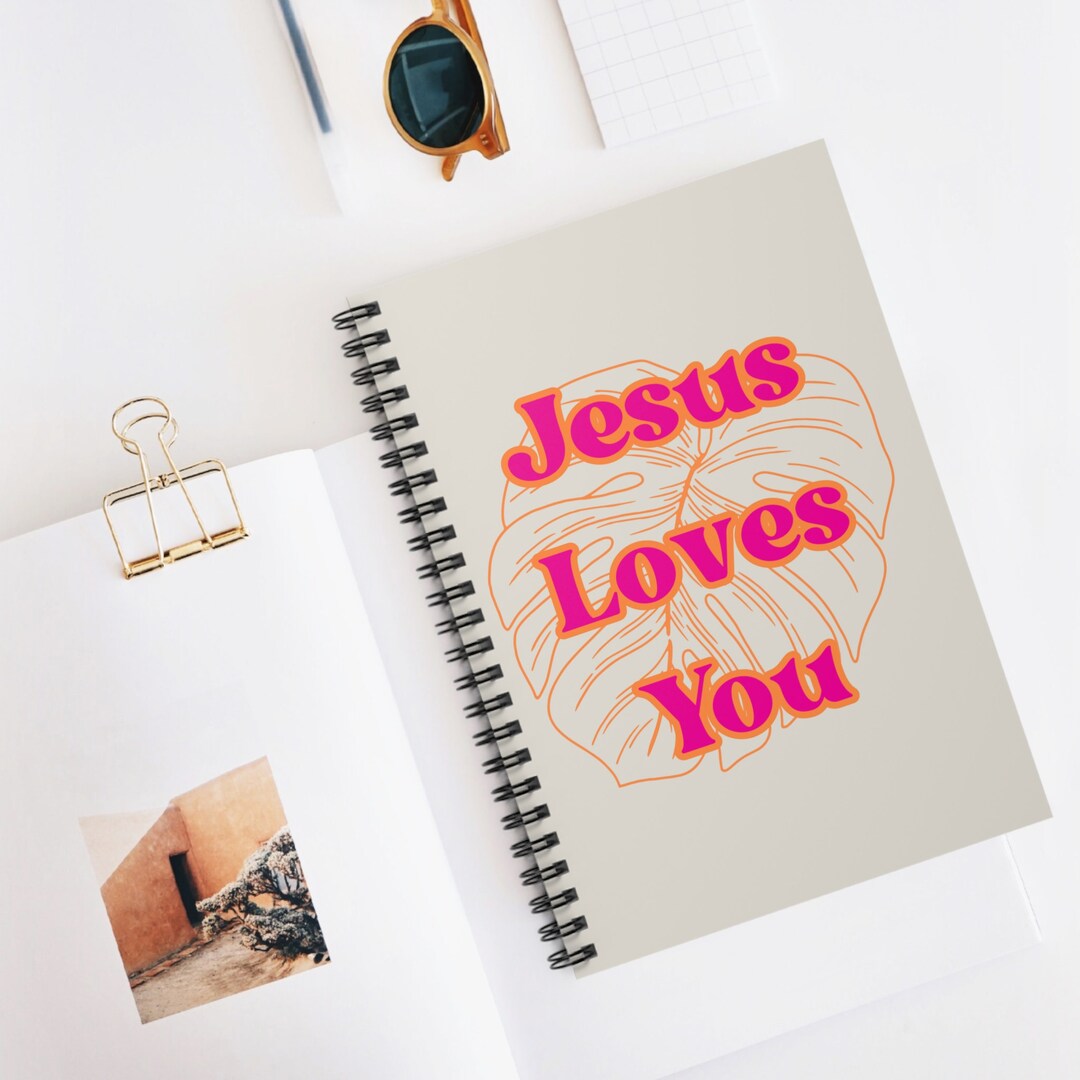 Jesus
Loves
You